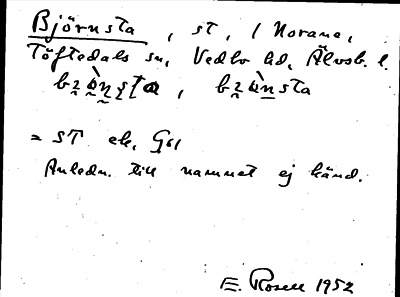 Björnsta, st, / Norane,
Töftedals sn, Vedbo hd, Älvsb. l.
= ST ek. G61
Anledn. till namnet ej känd.
E. Rosell 1952